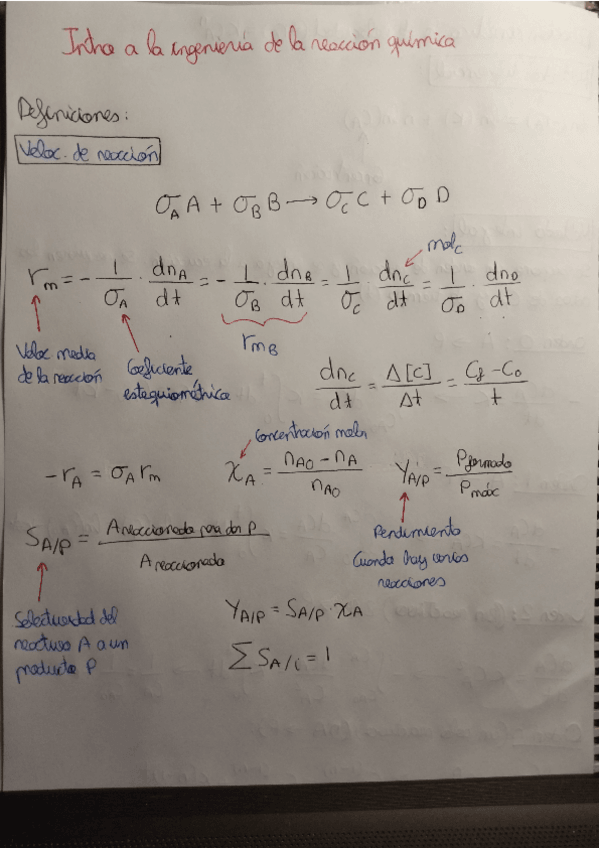 Intro a la ingeniería de la reacción química
Definiciones:
Veloc. de reacción
σ_A A + σ_B B → σ_C C + σ_D D
mol_C
r_m = - 1/σ_A · dn_A/dt = - 1/σ_B · dn_B/dt = 1/σ_C · dn_C/dt = 1/σ_D · dn_D/dt
r_mB
Veloc media
de la reacción
Coeficiente
estequiométrica
dn_C/dt = Δ[C]/Δt = (C_f - C_0)/t
Concentración molar
-r_A = σ_A r_m
χ_A = (n_A0 - n_A)/n_A0
Y_A/P = P formado/P máx
S_A/P = A reaccionado para dar P/A reaccionado
Rendimiento
Cuando hay varios
reacciones
Selectividad del
reactivo A a un
producto P
Y_A/P = S_A/P · χ_A
∑ S_A/i = 1